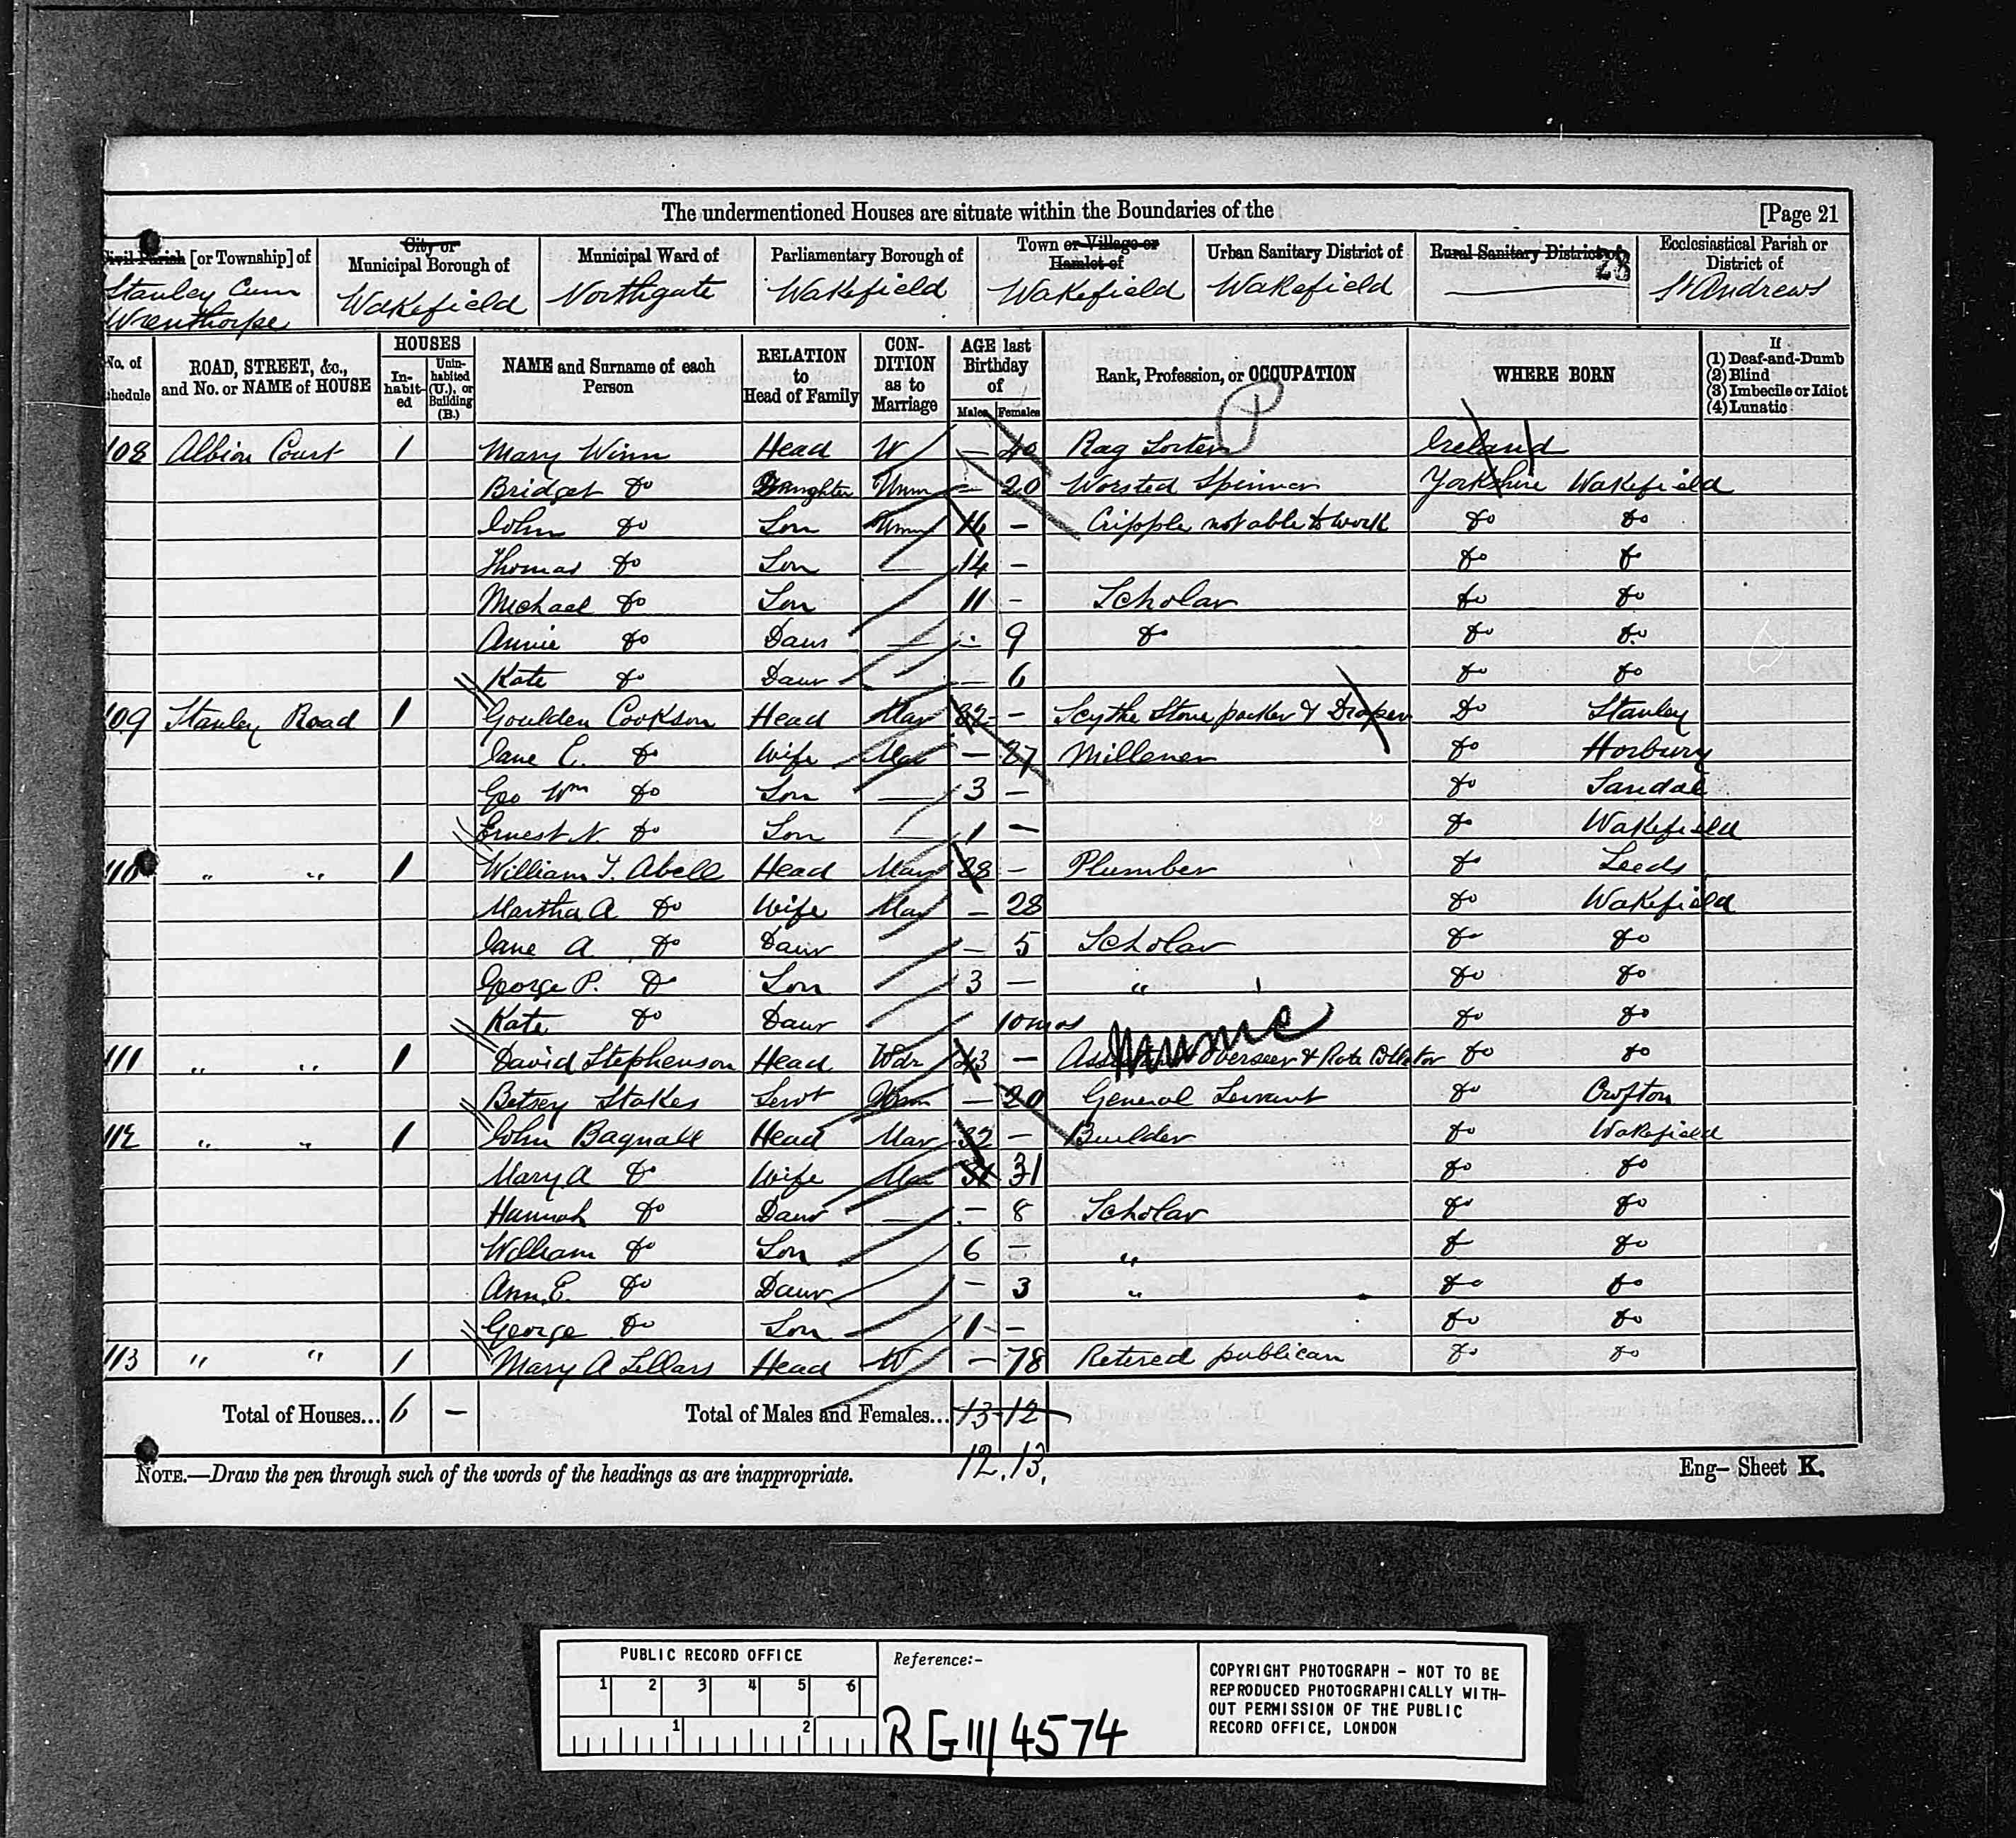 The undermentioned Houses are situate within the Boundaries of the [Page 21
Civil Parish [or Township] of City or Municipal Borough of Municipal Ward of Parliamentary Borough of Town or Village or Hamlet of Urban Sanitary District of Rural Sanitary District of Ecclesiastical Parish or District of
Stanley Cum Wrenthorpe Wakefield Northgate Wakefield Wakefield Wakefield 28 St Andrews
No. of Schedule ROAD, STREET, &c., and No. or NAME of HOUSE HOUSES Inhabited Uninhabited (U.), or Building (B.) NAME and Surname of each Person RELATION to Head of Family CONDITION as to Marriage AGE last Birthday of Males Females Rank, Profession, or OCCUPATION WHERE BORN If (1) Deaf-and-Dumb (2) Blind (3) Imbecile or Idiot (4) Lunatic
108 Albion Court 1 Mary Winn Head W — 40 Rag Sorter Ireland
Bridget Do Daughter Unm — 20 Worsted Spinner Yorkshire Wakefield
John Do Son Unm 16 — Cripple not able to work Do Do
Thomas Do Son — 14 — Do Do
Michael Do Son 11 — Scholar Do Do
Annie Do Daur — — 9 Do Do Do
Kate Do Daur — — 6 Do Do
109 Stanley Road 1 Goulden Cookson Head Mar 32 — Scythe Stone packer & Draper Do Stanley
Jane E. Do Wife Mar — 27 Millener Do Horbury
Geo Wm Do Son — 3 — Do Sandal
Ernest N. Do Son — 1 — Do Wakefield
110 " " 1 William T. Abell Head Mar 28 — Plumber Do Leeds
Martha A Do Wife Mar — 28 Do Wakefield
Jane A Do Daur — 5 Scholar Do Do
George P. Do Son 3 — " Do Do
Kate Do Daur 10 mos Do Do
111 " " 1 David Stephenson Head Wdr 43 — Assistant Overseer & Rate Collector Do Do
Betsey Stakes Servt Unm — 20 General Servant Do Crofton
112 " " 1 John Bagnall Head Mar 32 — Builder Do Wakefield
Mary A Do Wife Mar 31 31 Do Do
Hannah Do Daur — — 8 Scholar Do Do
William Do Son 6 — " Do Do
Ann E. Do Daur — 3 " Do Do
George Do Son 1 — Do Do
113 " " 1 Mary A Sellars Head W — 78 Retired publican Do Do
Total of Houses... 6 — Total of Males and Females... 13 12
12 . 13.
NOTE.—Draw the pen through such of the words of the headings as are inappropriate. Eng— Sheet K.
PUBLIC RECORD OFFICE
1 2 3 4 5 6
1 2
Reference:-
RG 11/4574
COPYRIGHT PHOTOGRAPH - NOT TO BE
REPRODUCED PHOTOGRAPHICALLY WITH-
OUT PERMISSION OF THE PUBLIC
RECORD OFFICE, LONDON